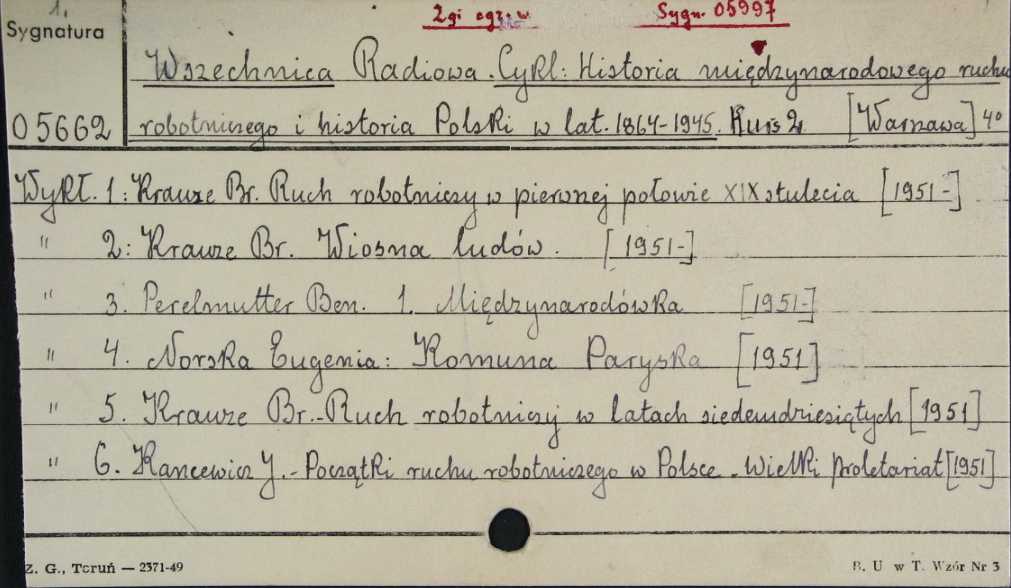 1.
2gi egz. w
Sygn. 05997
Sygnatura
05662
Wszechnica Radiowa. Cykl: Historia międzynarodowego ruchu
robotniczego i historia Polski w lat. 1864-1945. Kurs 2 [Warszawa] 4°
Wykł. 1: Krauze Br. Ruch robotniczy w pierwszej połowie XIX stulecia [1951-]
" 2: Krauze Br. Wiosna ludów. [1951-]
" 3. Perelmutter Ben. 1. Międzynarodówka [1951-]
" 4. Norska Eugenia: Komuna Paryska [1951]
" 5. Krauze Br.- Ruch robotniczy w latach siedemdziesiątych [1951]
" 6. Kancewicz J. - Początki ruchu robotniczego w Polsce - Wielki proletariat [1951]
Z. G., Toruń — 2371-49
B. U w T. Wzór Nr 3